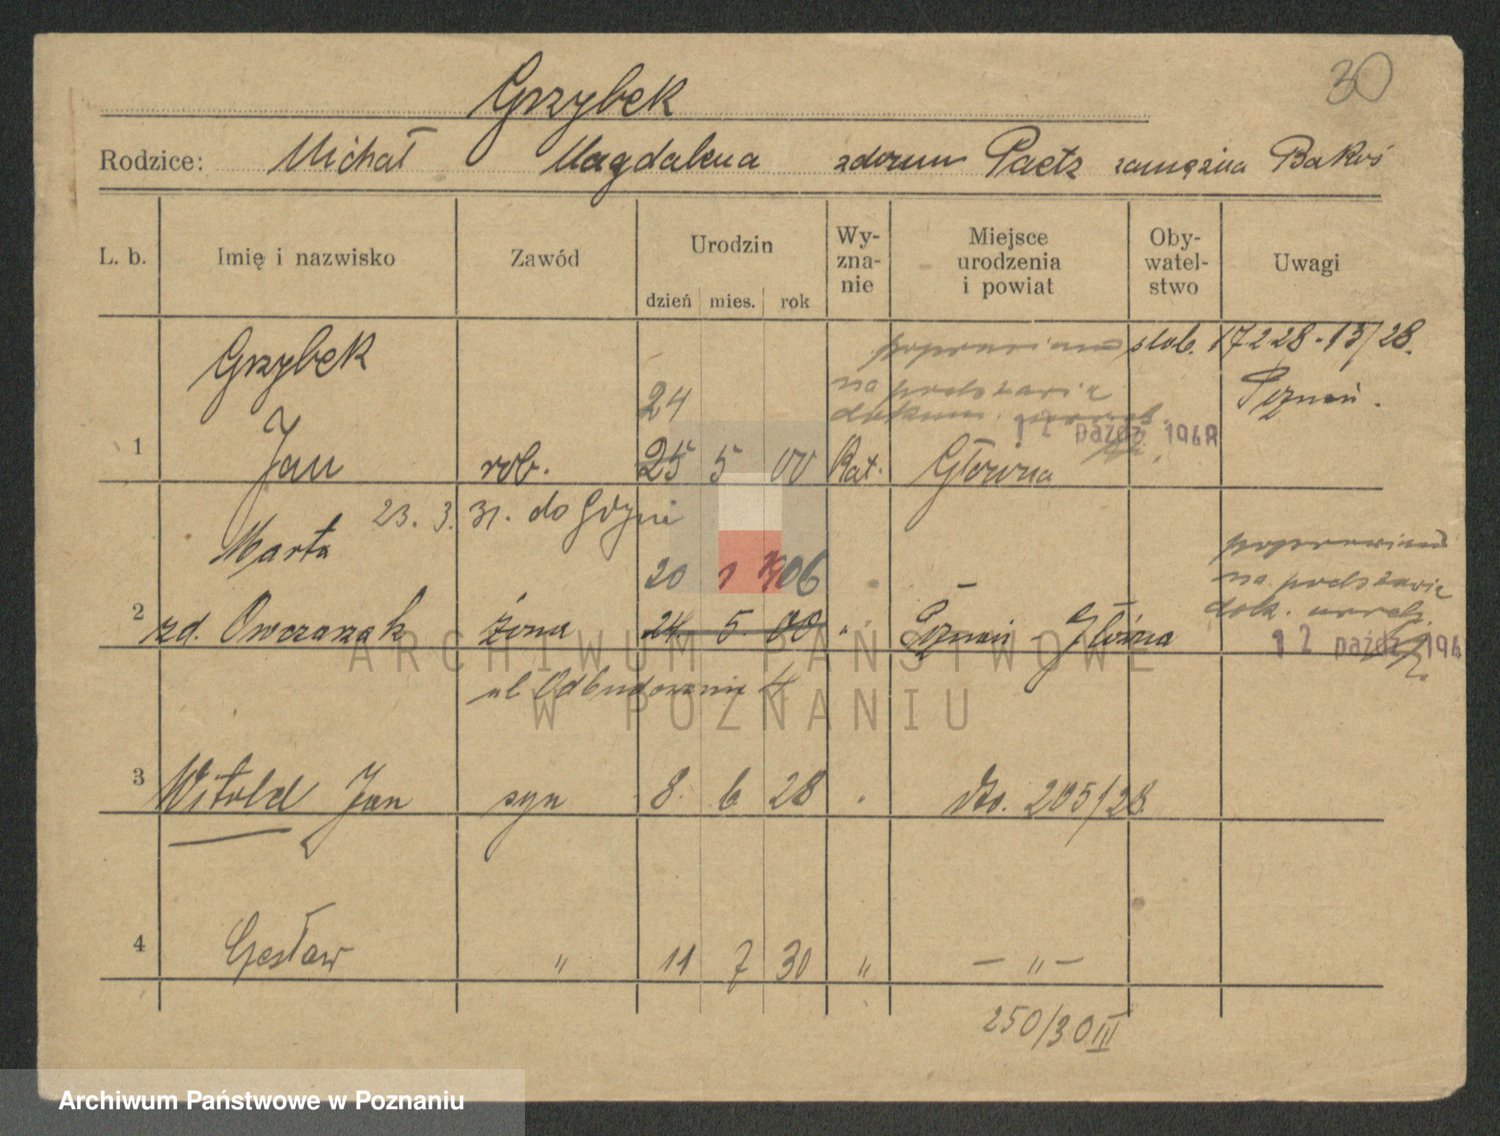 30
Grzybek
Rodzice: Michał Magdalena zdomu Paetz zamężna Bakoś
L. b. Imię i nazwisko Zawód Urodzin dzień mies. rok Wy-zna-nie Miejsce urodzenia i powiat Oby-watel-stwo Uwagi
Grzybek poprawiono slub. 17 2 28 - 15/28.
24 na podstawie Poznań.
dokum.
12 paźdz 1948
1 Jan rob. 25 5 00 Kat. Główna
23. 3. 31. do Gdyni
Marta 20 1 1906 poprawiono
na podstawie
dok.
2 zd. Owczarzak żona 24. 5. 00 " Poznań - Główna
12 paźdz 194
ul Odbudowania 4
3 Witold Jan syn 8. 6 28 " dto. 205/28
4 Czesław " 11 7 30 " — " —
250/30 III
ARCHIWUM PAŃSTWOWE
W POZNANIU
Archiwum Państwowe w Poznaniu